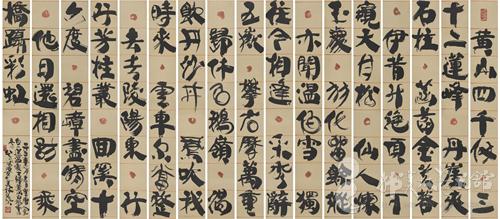 黄山四千仞三
十二蓮峰丹崖夾
石柱菡萏金芙蓉
伊昔升絕頂下
窺天目松仙人煉
玉處羽化留餘蹤
亦聞溫伯雪獨
往今相逢采秀辭
五嶽攀岩歷萬重
歸休白鵝嶺渴
飲丹砂井鳳吹我
時來雲車爾當整
去去陵陽東行
行芳桂叢回溪十
六度碧嶂盡晴空
他日還相訪乘
橋躡彩虹